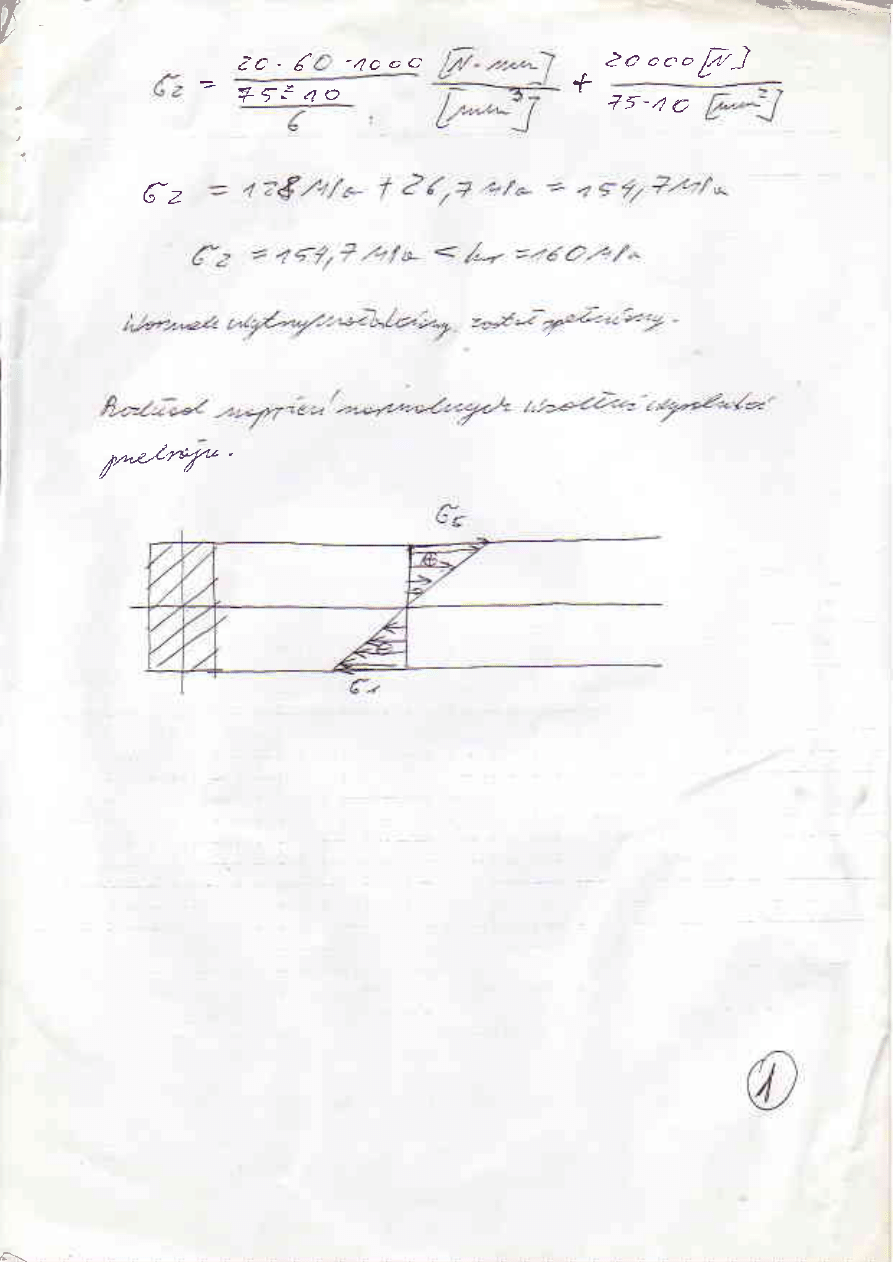 σz = 20 · 60 · 1000 / (75² · 10 / 6) [N·mm] / [mm³] + 20000 [N] / 75 · 10 [mm²]
σz = 128 MPa + 26,7 MPa = 154,7 MPa
σz = 154,7 MPa < kr = 160 MPa
Warunek wytrzymałościowy został spełniony.
Rozkład naprężeń normalnych wzdłuż wysokości
przekroju.
σ
⊕
σ1
1